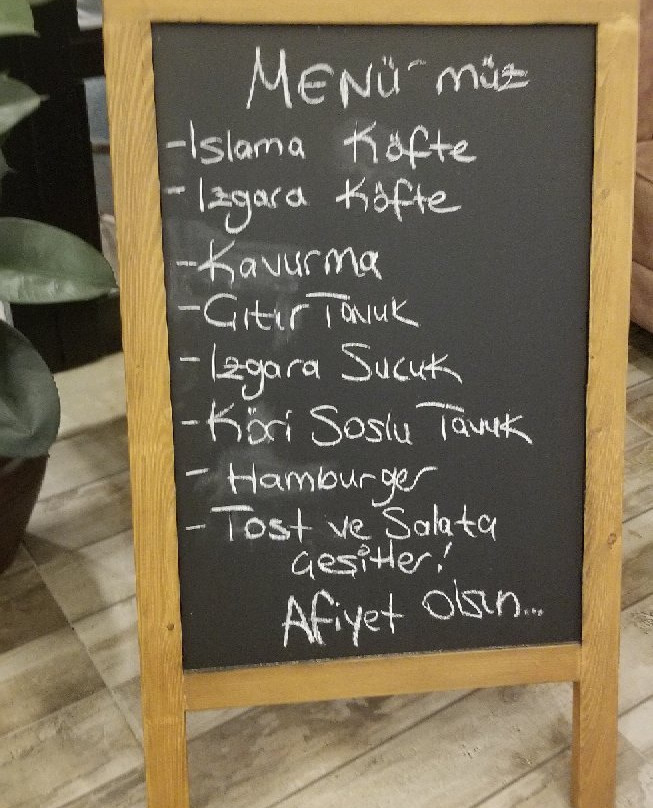 MENÜ müz
-Islama Köfte
-Izgara Köfte
-Kavurma
-Çıtır Tavuk
-Izgara Sucuk
-Köri Soslu Tavuk
- Hamburger
- Tost ve Salata
çeşitleri
Afiyet Olsun...